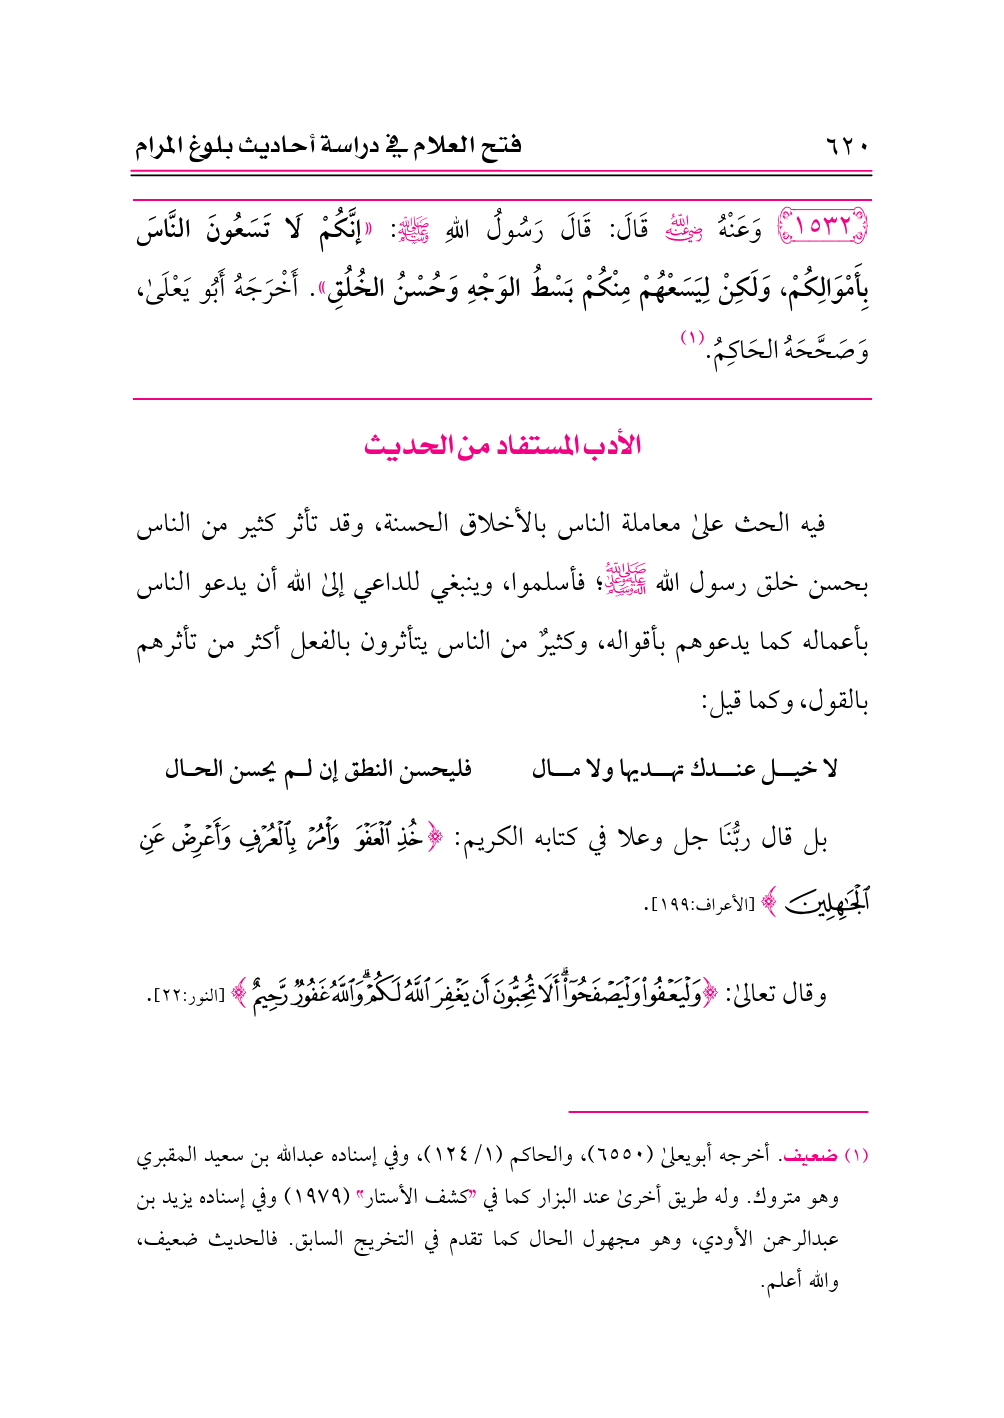 ٦٢٠ فتح العلام في دراسة أحاديث بلوغ المرام
١٥٣٢ وَعَنْهُ رضي الله عنه قَالَ: قَالَ رَسُولُ اللهِ ﷺ: «إنَّكُمْ لَا تَسَعُونَ النَّاسَ
بِأَمْوَالِكُمْ، وَلَكِنْ لِيَسَعْهُمْ مِنْكُمْ بَسْطُ الوَجْهِ وَحُسْنُ الخُلُقِ». أَخْرَجَهُ أَبُو يَعْلَىٰ،
وَصَحَّحَهُ الحَاكِمُ.(١)
الأدب المستفاد من الحديث
فيه الحث علىٰ معاملة الناس بالأخلاق الحسنة، وقد تأثر كثير من الناس
بحسن خلق رسول الله ﷺ؛ فأسلموا، وينبغي للداعي إلىٰ الله أن يدعو الناس
بأعماله كما يدعوهم بأقواله، وكثيرٌ من الناس يتأثرون بالفعل أكثر من تأثرهم
بالقول، وكما قيل:
لا خيــل عنــدك تهــديها ولا مــال فليحسن النطق إن لــم يحسن الحــال
بل قال ربُّنَا جل وعلا في كتابه الكريم: ﴿خُذِ ٱلْعَفْوَ وَأْمُرْ بِٱلْعُرْفِ وَأَعْرِضْ عَنِ
ٱلْجَٰهِلِينَ﴾ [الأعراف:١٩٩].
وقال تعالىٰ: ﴿وَلْيَعْفُوا۟ وَلْيَصْفَحُوٓا۟ ۗ أَلَا تُحِبُّونَ أَن يَغْفِرَ ٱللَّهُ لَكُمْ ۗ وَٱللَّهُ غَفُورٌ رَّحِيمٌ﴾ [النور:٢٢].
(١) ضعيف. أخرجه أبويعلىٰ (٦٥٥٠)، والحاكم (١/ ١٢٤)، وفي إسناده عبدالله بن سعيد المقبري
وهو متروك. وله طريق أخرىٰ عند البزار كما في "كشف الأستار" (١٩٧٩) وفي إسناده يزيد بن
عبدالرحمن الأودي، وهو مجهول الحال كما تقدم في التخريج السابق. فالحديث ضعيف،
والله أعلم.